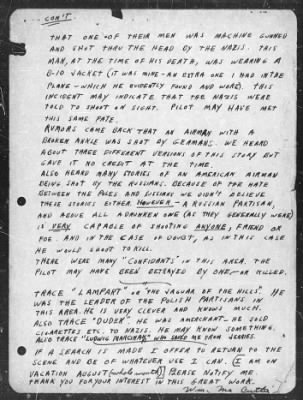 CON'T
THAT ONE OF THEIR MEN WAS MACHINE GUNNED
AND SHOT THRU THE HEAD BY THE NAZIS. THIS
MAN, AT THE TIME OF HIS DEATH, WAS WEARING A
B-10 JACKET (IT WAS MINE - AN EXTRA ONE I HAD IN THE
PLANE - WHICH HE EVIDENTLY FOUND AND WORE). THIS
INCIDENT MAY INDICATE THAT THE NAZIS WERE
TOLD TO SHOOT ON SIGHT. PILOT MAY HAVE MET
THIS SAME FATE.
RUMORS CAME BACK THAT AN AIRMAN WITH A
BROKEN ANKLE WAS SHOT BY GERMANS. WE HEARD
ABOUT THREE DIFFERENT VERSIONS OF THIS STORY BUT
GAVE IT NO CREDIT AT THE TIME.
ALSO HEARD MANY STORIES OF AN AMERICAN AIRMAN
BEING SHOT BY THE RUSSIANS. BECAUSE OF THE HATE
BETWEEN THE POLES AND RUSSIANS WE DIDN'T BELIEVE
THESE STORIES EITHER HOWEVER - A RUSSIAN PARTISAN,
AND ABOVE ALL A DRUNKEN ONE (AS THEY GENERALLY WERE)
IS VERY CAPABLE OF SHOOTING ANYONE, FRIEND OR
FOE. AND IN THE CASE OF DOUBT, AS IN THIS CASE
HE WOULD SHOOT TO KILL.
THERE WERE MANY "CONFIDENTS" IN THIS AREA. THE
PILOT MAY HAVE BEEN BETRAYED BY ONE - OR KILLED.
TRACE "LAMPART" OR "THE JAGUAR OF THE HILLS". HE
WAS THE LEADER OF THE POLISH PARTISANS IN
THIS AREA. HE IS VERY CLEVER AND KNOWS MUCH.
ALSO TRACE "DUDEK". HE WAS A MERCHANT - HE SOLD
CIGARETTES ETC. TO NAZIS. HE MAY KNOW SOMETHING.
ALSO TRACE "LUDWIG MARCHAS" WHO SAVED ME FROM
IF A SEARCH IS MADE I OFFER TO RETURN TO THE
SCENE AND BE OF WHATEVER USE I CAN. (I AM ON
VACATION AUGUST (whole month)) PLEASE NOTIFY ME.
THANK YOU FOR YOUR INTEREST IN THIS GREAT WORK.
Wm. Mc